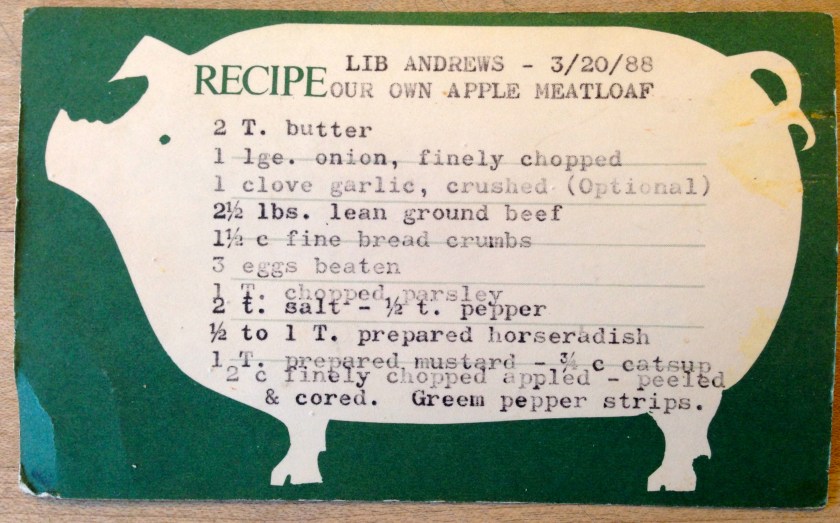 LIB ANDREWS - 3/20/88
RECIPE OUR OWN APPLE MEATLOAF
2 T. butter
1 lge. onion, finely chopped
1 clove garlic, crushed (Optional)
2½ lbs. lean ground beef
1½ c fine bread crumbs
3 eggs beaten
1 T. chopped parsley
2 t. salt - ½ t. pepper
½ to 1 T. prepared horseradish
1 T. prepared mustard - ¾ c catsup
2 c finely chopped appled - peeled
& cored. Greem pepper strips.